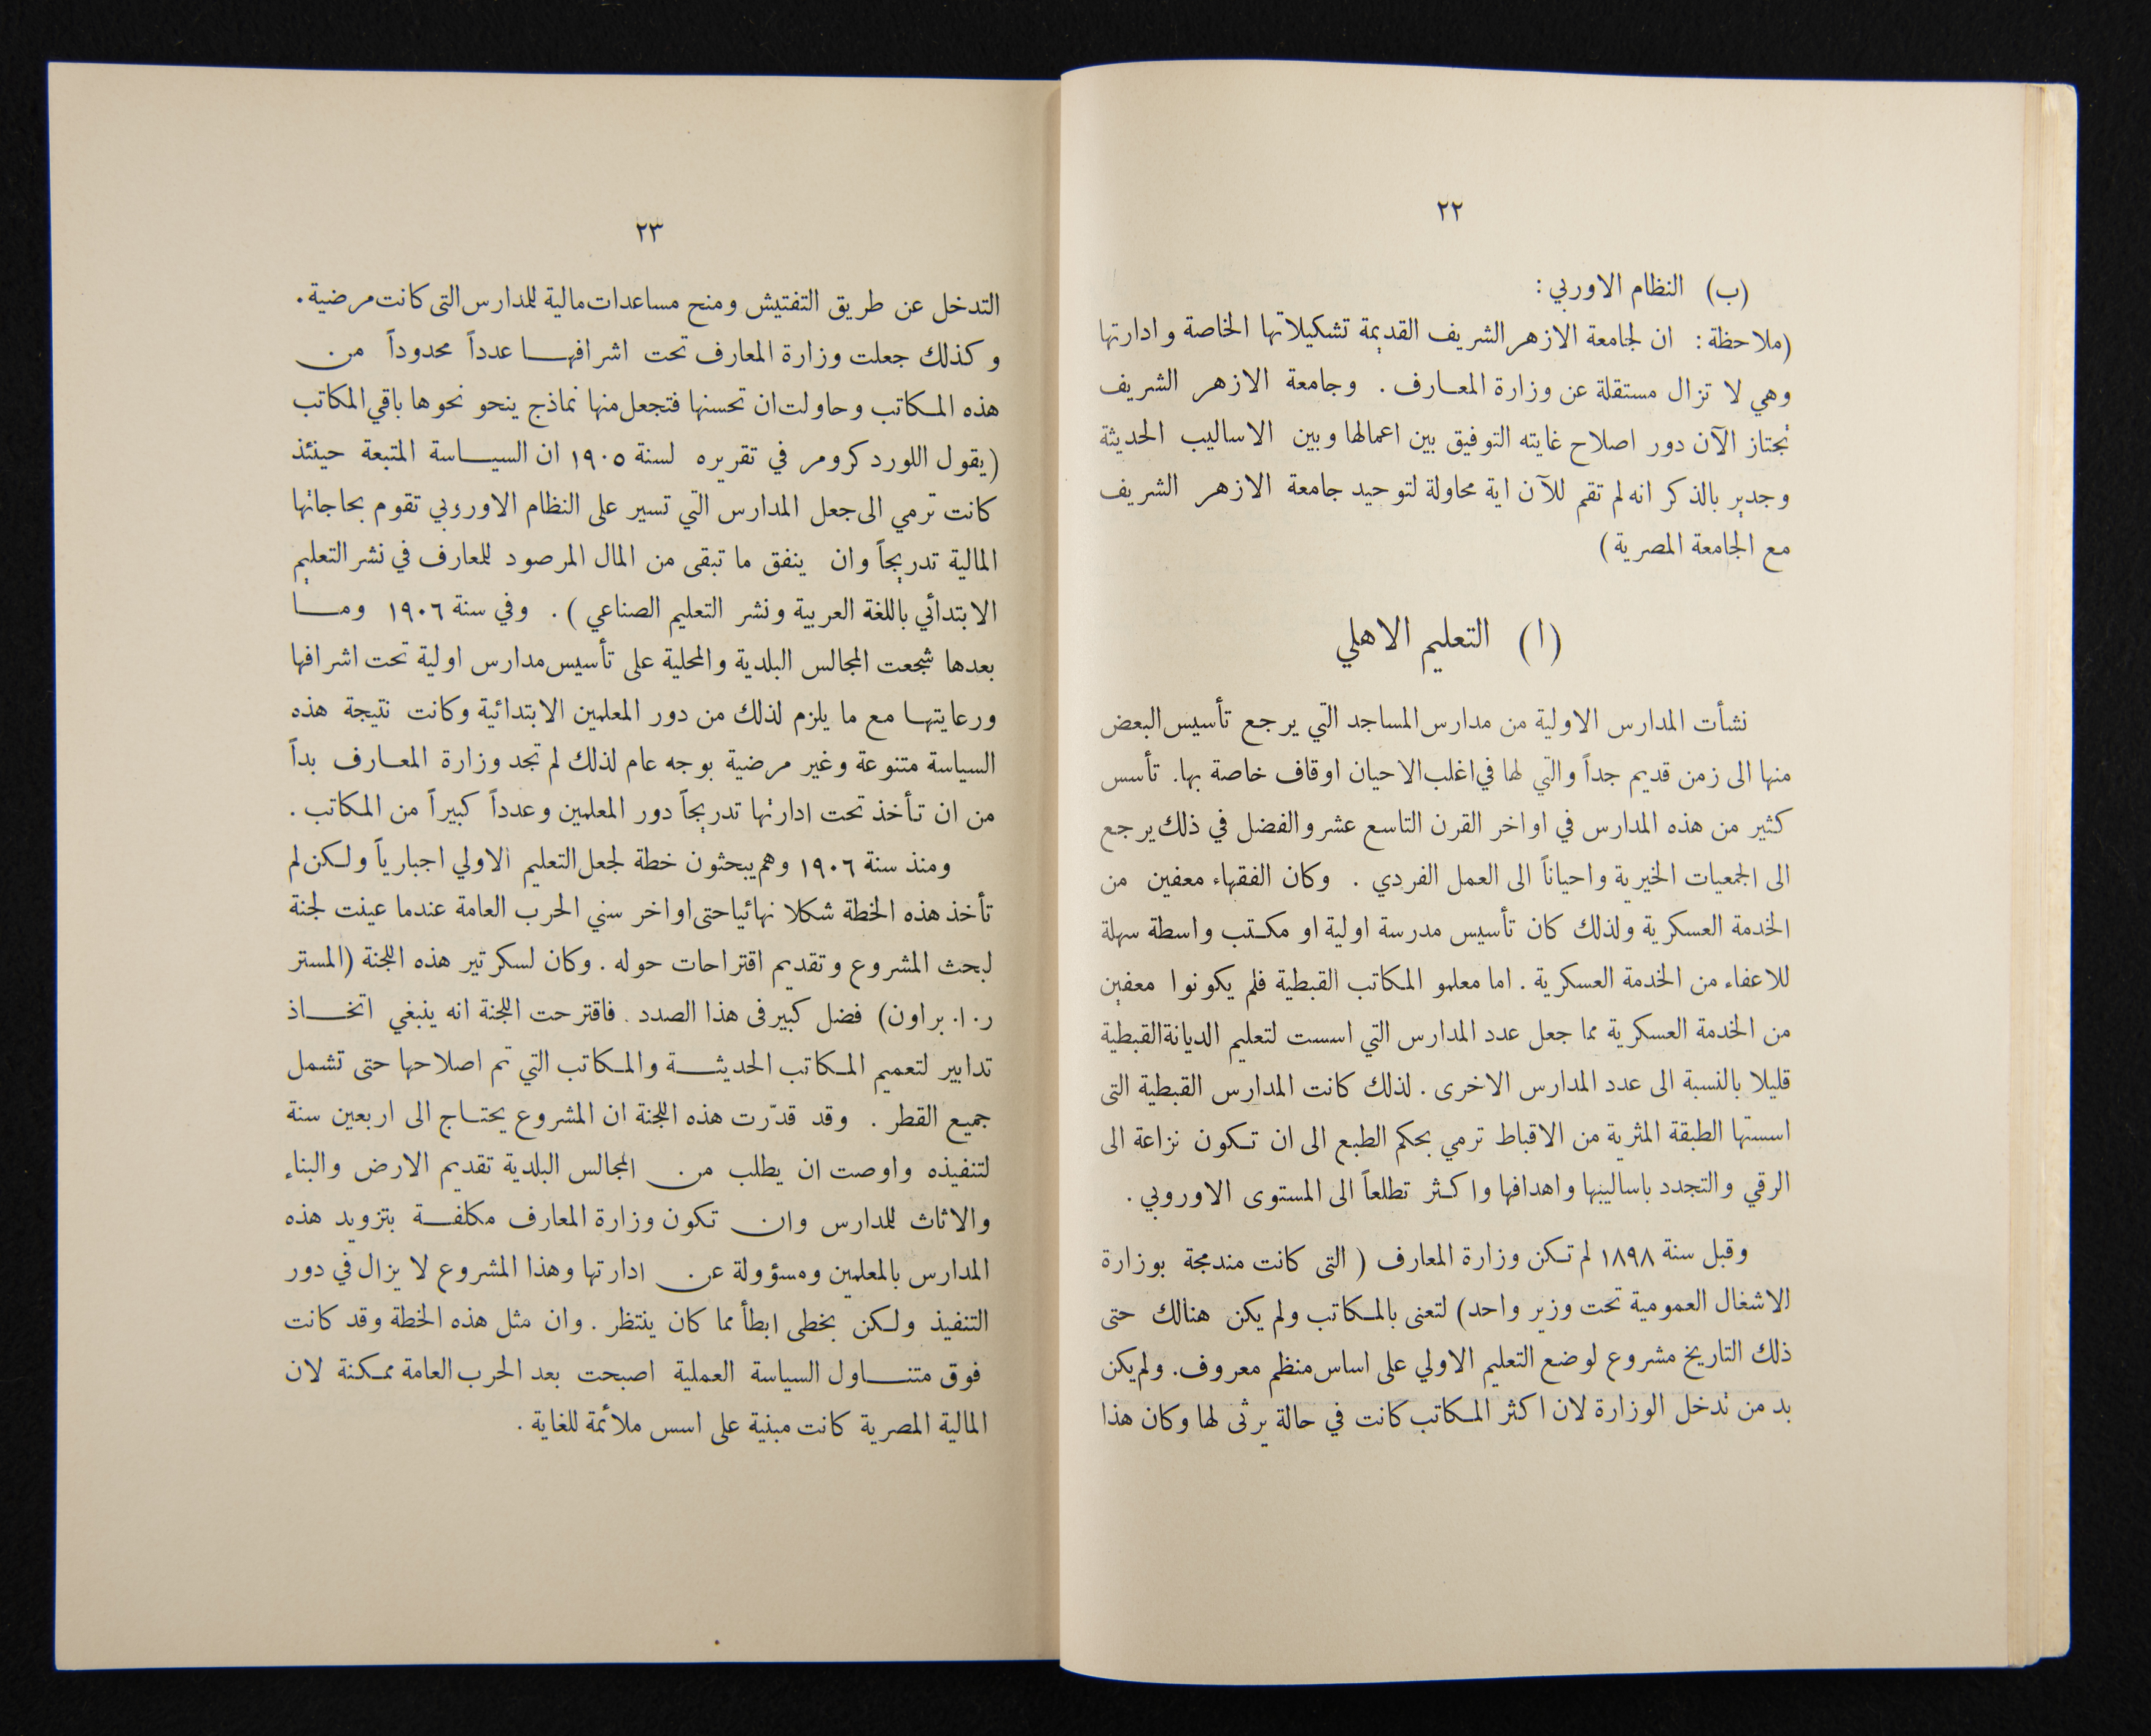 ٢٢
(ب) النظام الاوربي :
(ملاحظة : ان لجامعة الازهر الشريف القديمة تشكيلاتها الخاصة وادارتها
وهي لا تزال مستقلة عن وزارة المعارف . وجامعة الازهر الشريف
تجتاز الآن دور اصلاح غايته التوفيق بين اعمالها وبين الاساليب الحديثة
وجدير بالذكر انه لم تقم للآن اية محاولة لتوحيد جامعة الازهر الشريف
مع الجامعة المصرية)
(ا) التعليم الاهلي
نشأت المدارس الاولية من مدارس المساجد التي يرجع تأسيس البعض
منها الى زمن قديم جداً والتي لها في اغلب الاحيان اوقاف خاصة بها. تأسس
كثير من هذه المدارس في اواخر القرن التاسع عشر والفضل في ذلك يرجع
الى الجمعيات الخيرية واحياناً الى العمل الفردي . وكان الفقهاء معفين من
الخدمة العسكرية ولذلك كان تأسيس مدرسة اولية او مكتب واسطة سهلة
للاعفاء من الخدمة العسكرية . اما معلمو المكاتب القبطية فلم يكونوا معفين
من الخدمة العسكرية مما جعل عدد المدارس التي اسست لتعليم الديانة القبطية
قليلا بالنسبة الى عدد المدارس الاخرى . لذلك كانت المدارس القبطية التى
اسستها الطبقة المثرية من الاقباط ترمي بحكم الطبع الى ان تكون نزاعة الى
الرقي والتجدد باساليبها واهدافها واكثر تطلعاً الى المستوى الاوروبي .
وقبل سنة ١٨٩٨ لم تكن وزارة المعارف ( التى كانت مندمجة بوزارة
الاشغال العمومية تحت وزير واحد) لتعنى بالمكاتب ولم يكن هنالك حتى
ذلك التاريخ مشروع لوضع التعليم الاولي على اساس منظم معروف. ولم يكن
بد من تدخل الوزارة لان اكثر المكاتب كانت في حالة يرثى لها وكان هذا
٢٣
التدخل عن طريق التفتيش ومنح مساعدات مالية للمدارس التى كانت مرضية .
وكذلك جعلت وزارة المعارف تحت اشرافها عدداً محدوداً من
هذه المكاتب وحاولت ان تحسنها فتجعل منها نماذج ينحو نحوها باقي المكاتب
(يقول اللورد كرومر في تقريره لسنة ١٩٠٥ ان السياسة المتبعة حينئذ
كانت ترمي الى جعل المدارس التي تسير على النظام الاوروبي تقوم بحاجاتها
المالية تدريجاً وان ينفق ما تبقى من المال المرصود للمعارف في نشر التعليم
الابتدائي باللغة العربية ونشر التعليم الصناعي ) . وفي سنة ١٩٠٦ وما
بعدها شجعت المجالس البلدية والمحلية على تأسيس مدارس اولية تحت اشرافها
ورعايتها مع ما يلزم لذلك من دور المعلمين الابتدائية وكانت نتيجة هذه
السياسة متنوعة وغير مرضية بوجه عام لذلك لم تجد وزارة المعارف بداً
من ان تأخذ تحت ادارتها تدريجاً دور المعلمين وعدداً كبيراً من المكاتب .
ومنذ سنة ١٩٠٦ وهم يبحثون خطة لجعل التعليم الاولي اجبارياً ولكن لم
تأخذ هذه الخطة شكلا نهائيا حتى اواخر سني الحرب العامة عندما عينت لجنة
لبحث المشروع وتقديم اقتراحات حوله . وكان لسكرتير هذه اللجنة (المستر
ر . ا . براون) فضل كبير فى هذا الصدد . فاقترحت اللجنة انه ينبغي اتخاذ
تدابير لتعميم المكاتب الحديثة والمكاتب التي تم اصلاحها حتى تشمل
جميع القطر . وقد قدّرت هذه اللجنة ان المشروع يحتاج الى اربعين سنة
لتنفيذه واوصت ان يطلب من المجالس البلدية تقديم الارض والبناء
والاثاث للمدارس وان تكون وزارة المعارف مكلفة بتزويد هذه
المدارس بالمعلمين ومسؤولة عن ادارتها وهذا المشروع لا يزال في دور
التنفيذ ولكن بخطى ابطأ مما كان ينتظر . وان مثل هذه الخطة وقد كانت
فوق متناول السياسة العملية اصبحت بعد الحرب العامة ممكنة لان
المالية المصرية كانت مبنية على اسس ملائمة للغاية .